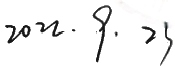 2022. 9. 25